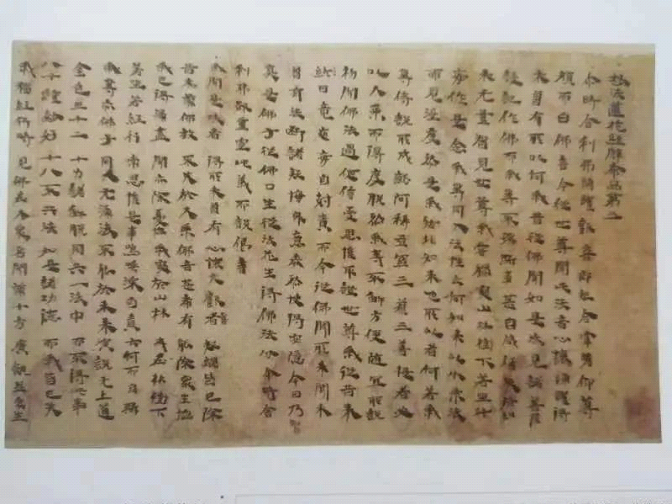 妙法蓮花經譬喻品第三
尒時舍利弗踊躍歡喜即起合掌瞻仰尊
顏而白佛言今從世尊聞此法音心懷踊躍得
未曾有所以者何我昔從佛聞如是法見諸菩薩
授記作佛而我等不豫斯事甚自感傷失於如
來无量知見世尊我常獨處山林樹下若坐若行
每作是念我等同入法性云何如來以小乘法
而見濟度是我等咎非世尊也所以者何若我
等待說所因成就阿耨三藐三菩提者必
以大乘而得度脫然我等不解方便隨宜所說
初聞佛法遇便信受思惟取證世尊我從昔來
終日竟夜每自剋責而今從佛聞所未聞未
曾有法斷諸疑悔身意泰然快得安隱今日乃知
真是佛子從佛口生從法化生得佛法分尒時舍
利弗欲重宣此義而說偈言
我聞是法音 得所未曾有 心懷大歡喜 疑網皆已除
昔來蒙佛教 不失於大乘 佛音甚希有 能除眾生惱
我已得漏盡 聞亦除憂惱 我處於山林 或在林樹下
若坐若經行 常思惟是事 嗚呼深自責 云何而自欺
我等亦佛子 同入无漏法 不能於未來 演說无上道
金色三十二 十力諸解脫 同共一法中 而不得此事
八十種妙好 十八不共法 如是等功德 而我皆已失
我獨經行時 見佛在大眾 名聞滿十方 廣饒益眾生